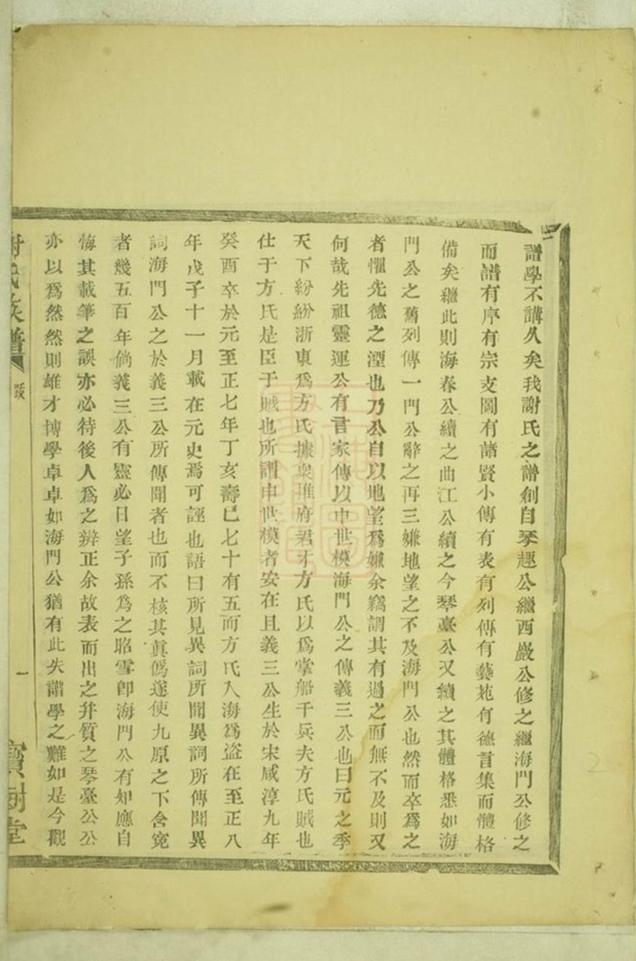 譜學不講久矣我謝氏之譜創自琴趣公繼西巖公修之繼海門公修之
而譜有序有宗支圖有諸賢小傳有表有列傳有藝苑有德言集而體格
備矣繼此則海春公續之曲江公續之今琴臺公又續之其體格悉如海
門公之舊列傳一門公辭之再三嫌地望之不及海門公也然而卒為之
者懼先德之湮也乃公自以地望為嫌余竊謂其有過之而無不及則又
何哉先祖靈運公有言家傳以申世模海門公之傳義三公也曰元之季
天下紛紛浙東為方氏據
府君才方氏以為掌船千兵夫方氏賊也
仕于方氏是臣于賊也所謂申世模者安在且義三公生於宋咸淳九年
癸酉卒於元至正七年丁亥壽已七十有五而方氏入海為盜在至正八
年戊子十一月載在元史焉可誣也語曰所見異詞所聞異詞所傳聞異
詞海門公之於義三公所傳聞者也而不核其真偽遂使九原之下含冤
者幾五百年倘義三公有靈必日望子孫為之昭雪卽海門公有知應自
悔其載筆之誤亦必待後人為之辨正余故表而出之幷質之琴臺公公
亦以為然然則雄才博學卓卓如海門公猶有此失譜學之難如是今觀
謝氏族譜 跋 一 寶樹堂